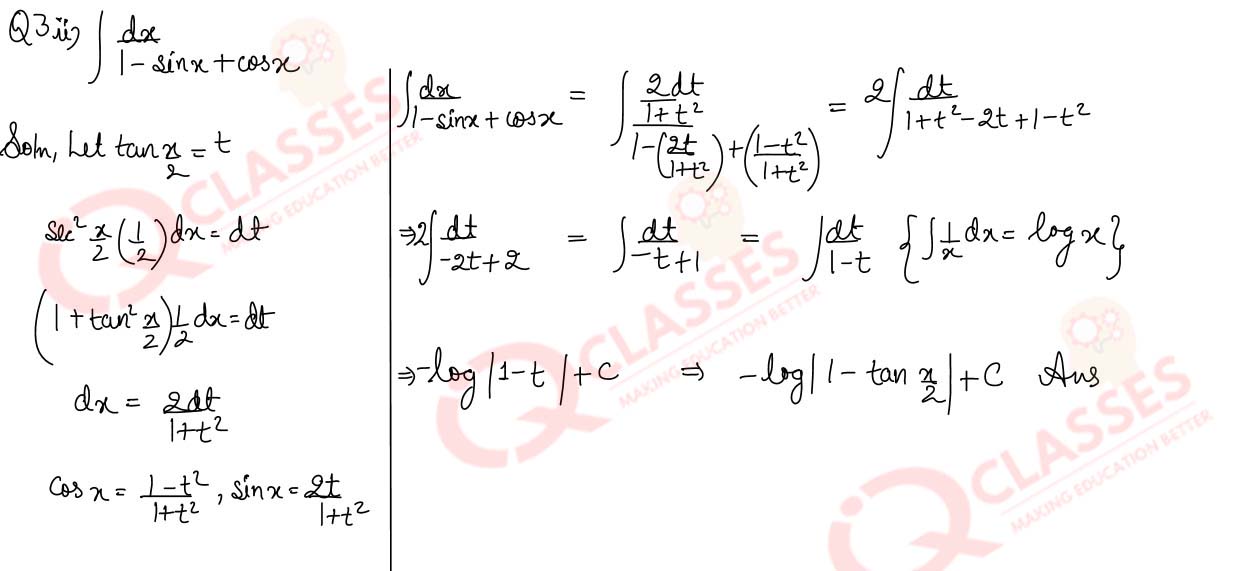 Q3.ii) ∫ dx / (1 - sinx + cosx)
Soln, Let tan x/2 = t
sec² x/2 (1/2) dx = dt
(1 + tan² x/2) 1/2 dx = dt
dx = 2dt / (1+t²)
cos x = (1-t²)/(1+t²), sin x = 2t/(1+t²)
∫ dx / (1-sinx + cosx) = ∫ (2dt/(1+t²)) / (1-(2t/(1+t²)) + ((1-t²)/(1+t²))) = 2∫ dt / (1+t²-2t+1-t²)
⇒ 2∫ dt / (-2t+2) = ∫ dt / (-t+1) = ∫ dt / (1-t) {∫ 1/x dx = log x}
⇒ -log |1-t| + C ⇒ -log |1 - tan x/2| + C Ans
iQ CLASSES
MAKING EDUCATION BETTER
iQ CLASSES
MAKING EDUCATION BETTER
iQ CLASSES
MAKING EDUCATION BETTER